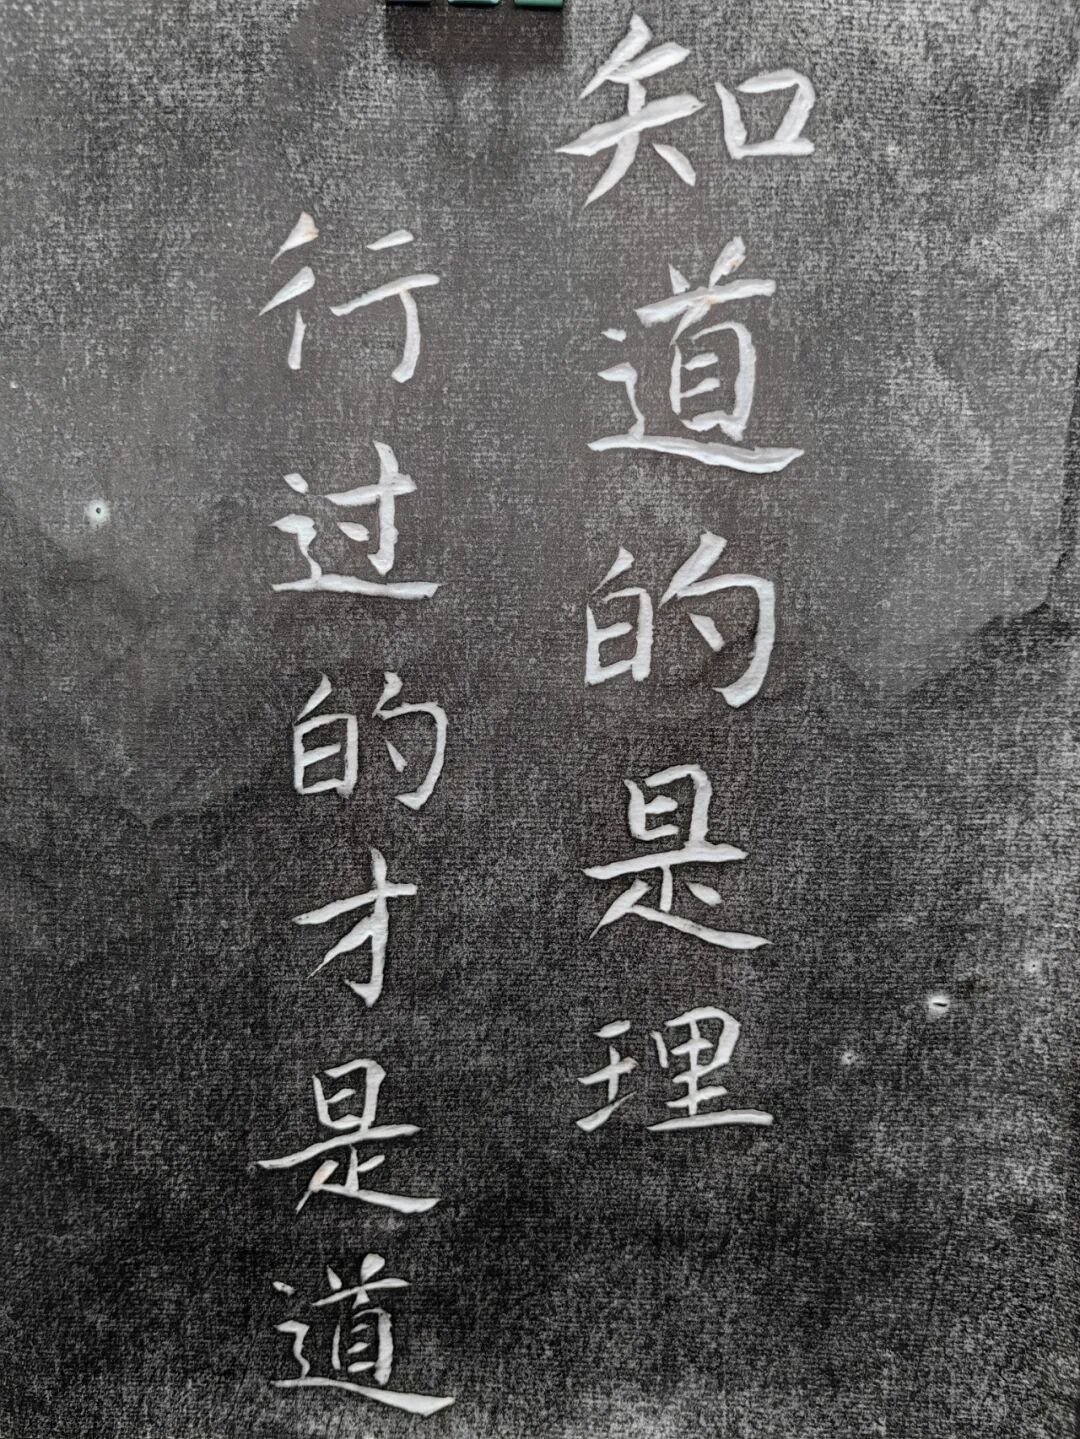 知道的是理
行过的才是道